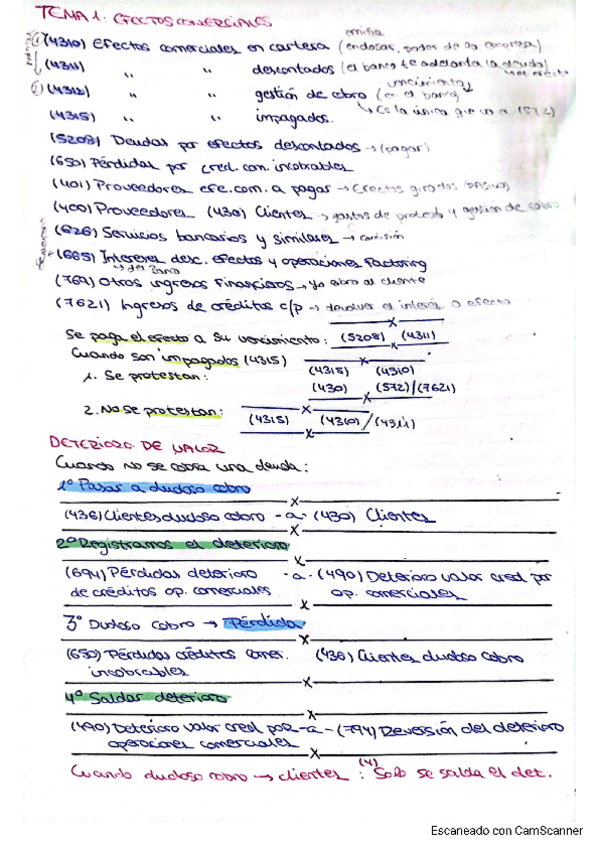 TEMA 1: EFECTOS COMERCIALES
① (4310) Efectos comerciales en cartera (endosar, poder de la empresa)
(4311) " " descontados (el banco te adelanta la deuda)
vencimiento
② (4312) " " gestión de cobro (en el banco)
↳ Es la única que va a (572)
(4315) " " impagados.
(5208) Deudas por efectos descontados → (pagar)
(650) Pérdidas por cred. com. incobrables
(401) Proveedores efe. com. a pagar → Efectos girados
(400) Proveedores (430) Clientes → gastos de protesto y gestión de cobro
(626) Servicios bancarios y similares → comisión
(665) Intereses desc. efectos y operaciones Factoring
↳ del banco
(769) Otros ingresos financieros → Yo cobro al cliente
(7621) Ingresos de créditos c/p → devolver el interés o efecto
x
Se paga el efecto a su vencimiento: (5208) (4311)
x
Cuando son impagados (4315)
x
1. Se protestan: (4315) (4310)
(430) (572)/(7621)
x
2. No se protestan:
x
(4315) (4310)/(4311)
x
DETERIORO DE VALOR
Cuando no se cobra una deuda:
1º Pasar a dudoso cobro
x
(436) Clientes dudoso cobro - a - (430) Clientes
x
2º Registramos el deterioro
x
(694) Pérdidas deterioro - a - (490) Deterioro valor cred por
de créditos op. comerciales op. comerciales
x
3º Dudoso cobro → Pérdida
x
(650) Pérdidas créditos comer. (436) Clientes dudoso cobro
incobrables
x
4º Saldar deterioro
x
(490) Deterioro valor cred por - a - (794) Reversión del deterioro
operaciones comerciales
x
Cuando dudoso cobro → clientes : (4) Solo se salda el det.
Escaneado con CamScanner